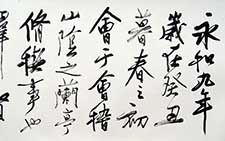 永和九年
歲在癸丑
暮春之初
會于會稽
山陰之蘭亭
脩禊事也